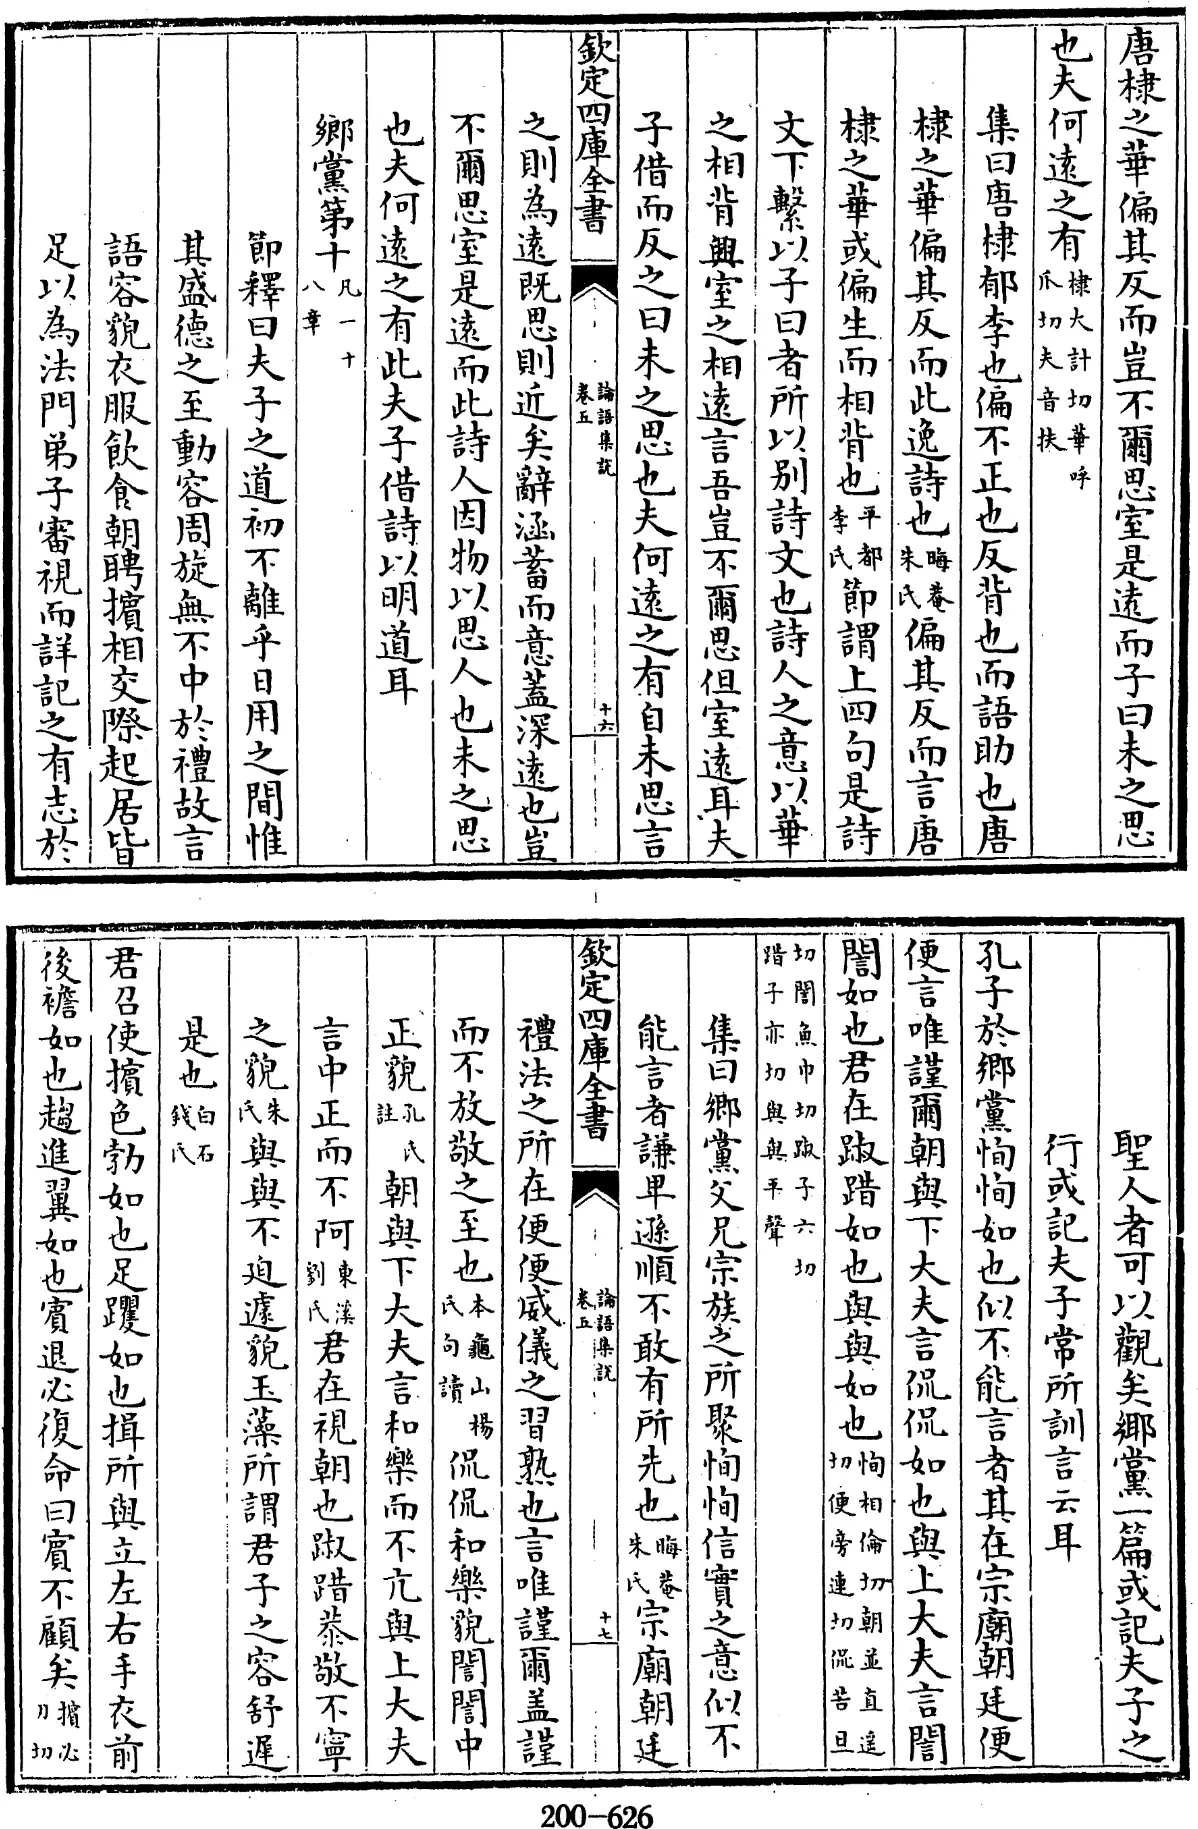 唐棣之華偏其反而豈不爾思室是遠而子曰未之思
也夫何遠之有棣大計切華呼爪切夫音扶
集曰唐棣郁李也偏不正也反背也而語助也唐
棣之華偏其反而此逸詩也晦菴朱氏偏其反而言唐
棣之華或偏生而相背也平都李氏節謂上四句是詩
文下繫以子曰者所以別詩文也詩人之意以華
之相背興室之相遠言吾豈不爾思但室遠耳夫
子借而反之曰未之思也夫何遠之有自未思言
欽定四庫全書
論語集說
卷五
十六
之則為遠既思則近矣辭涵蓄而意蓋深遠也豈
不爾思室是遠而此詩人因物以思人也未之思
也夫何遠之有此夫子借詩以明道耳
鄉黨第十凡一十八章
節釋曰夫子之道初不離乎日用之間惟
其盛德之至動容周旋無不中於禮故言
語容貌衣服飲食朝聘擯相交際起居皆
足以為法門弟子審視而詳記之有志於
聖人者可以觀矣鄉黨一篇或記夫子之
行或記夫子常所訓言云耳
孔子於鄉黨恂恂如也似不能言者其在宗廟朝廷便
便言唯謹爾朝與下大夫言侃侃如也與上大夫言誾
誾如也君在踧踖如也與與如也恂相倫切朝並直遥切便旁連切侃苦旦
切誾魚巾切踧子六切踖子亦切與與平聲
集曰鄉黨父兄宗族之所聚恂恂信實之意似不
能言者謙卑遜順不敢有所先也晦菴朱氏宗廟朝廷
欽定四庫全書
論語集說
卷五
十七
禮法之所在便便威儀之習熟也言唯謹爾盖謹
而不放敬之至也本龜山楊氏句讀侃侃和樂貌誾誾中
正貌孔氏註朝與下大夫言和樂而不亢與上大夫
言中正而不阿東溪劉氏君在視朝也踧踖恭敬不寧
之貌朱氏與與不廹遽貌玉藻所謂君子之容舒遲
是也白石錢氏
君召使擯色勃如也足躩如也揖所與立左右手衣前
後襜如也趨進翼如也賓退必復命曰賓不顧矣擯必刃切
200-626